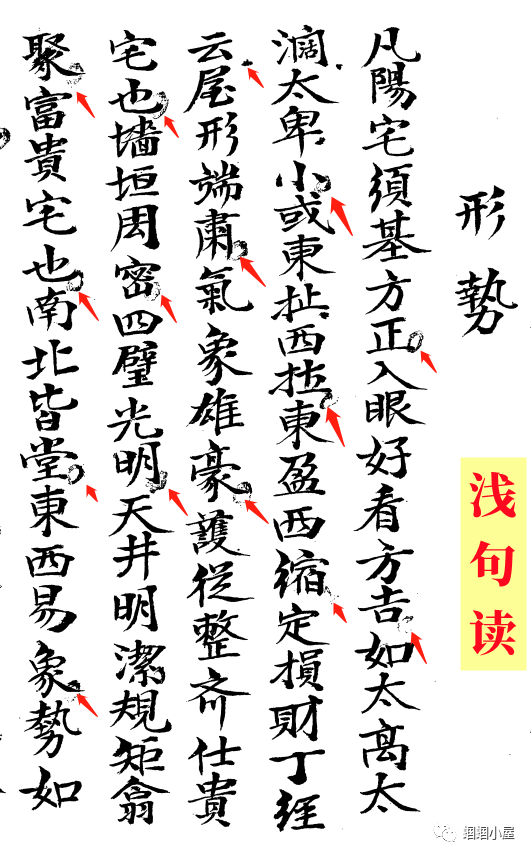 形勢
凡陽宅須基方正入眼好看方吉如太高太
濶太卑小或東扯西拉東盈西縮定損財丁經
云屋形端肅氣象雄豪護從整齐仕貴
宅也墙垣周密四壁光明天井明潔規矩翕
聚富貴宅也南北皆堂東西易象勢如
浅句读
蝈蝈小屋